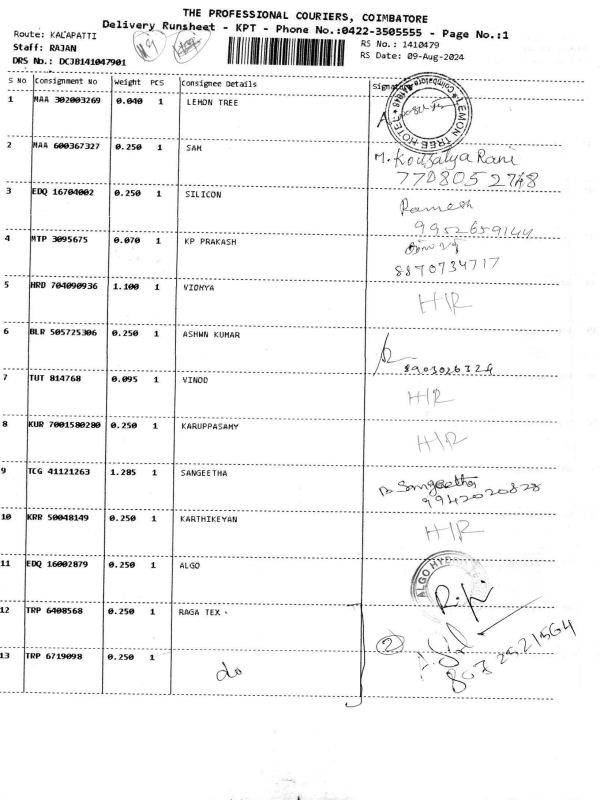 THE PROFESSIONAL COURIERS, COIMBATORE
Delivery Runsheet - KPT - Phone No.:0422-3505555 - Page No.:1
Route: KALAPATTI
Staff: RAJAN
DRS No.: DCJB141047901
RS No.: 1410479
RS Date: 09-Aug-2024
S No Consignment No Weight PCS Consignee Details Signature
1 MAA 302003269 0.040 1 LEMON TREE
LEMON TREE HOTEL
2 MAA 600367327 0.250 1 SAM M. Kousalya Rani
3 EDQ 16704002 0.250 1 SILICON Ramesh
9952659144
4 MTP 3095675 0.070 1 KP PRAKASH
8870734717
5 HRD 704090936 1.100 1 VIDHYA H/R
6 BLR 505725306 0.250 1 ASHWN KUMAR
8903026324
7 TUT 814768 0.095 1 VINOD H/R
8 KUR 7001580280 0.250 1 KARUPPASAMY H/R
9 TCG 41121263 1.285 1 SANGEETHA Sangeetha
9942020828
10 KRR 50048149 0.250 1 KARTHIKEYAN H/R
11 EDQ 16002879 0.250 1 ALGO
ALGO
12 TRP 6408568 0.250 1 RAGA TEX
2
13 TRP 6719098 0.250 1 do